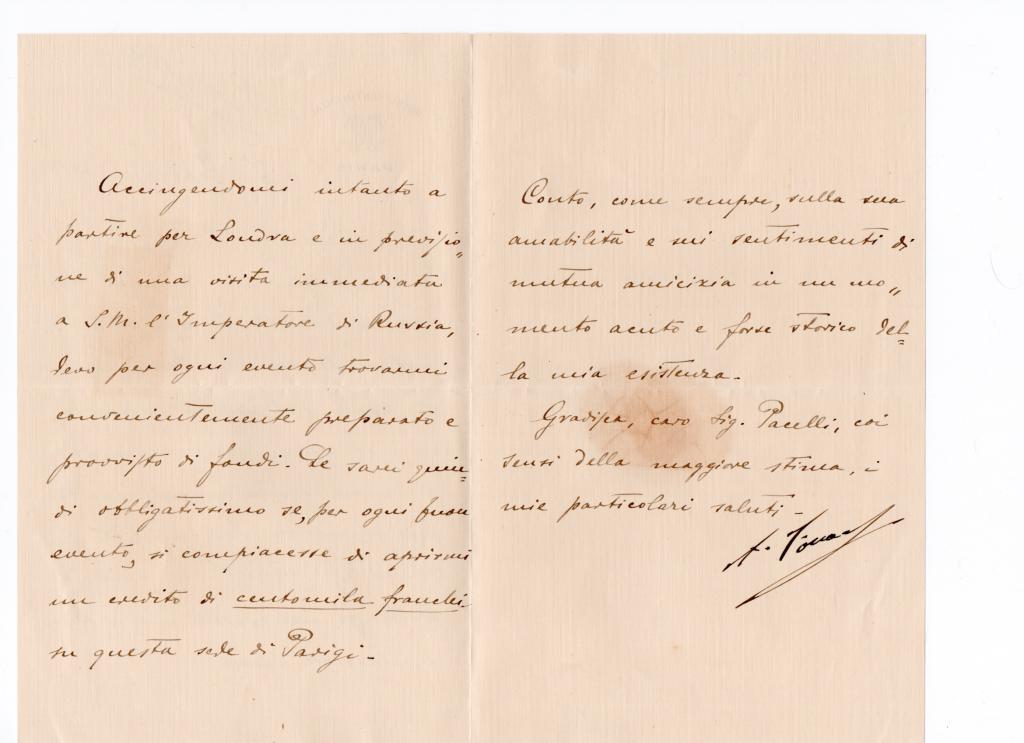 Accingendomi intanto a
partire per Londra e in previsio„
ne di una visita immediata
a S. M. l'Imperatore di Russia,
devo per ogni evento trovarmi
convenientemente preparato e
provvisto di fondi. Le sarei quin=
di obbligatissimo se, per ogni buon
evento, si compiacesse di aprirmi
un credito di centomila franchi
su questa sede di Parigi.
Conto, come sempre, sulla sua
amabilità e sui sentimenti di
mutua amicizia in un mo„
mento acuto e forse storico del=
la mia esistenza.
Gradisca, caro Sig. Pacelli, coi
sensi della maggiore stima, i
miei particolari saluti.